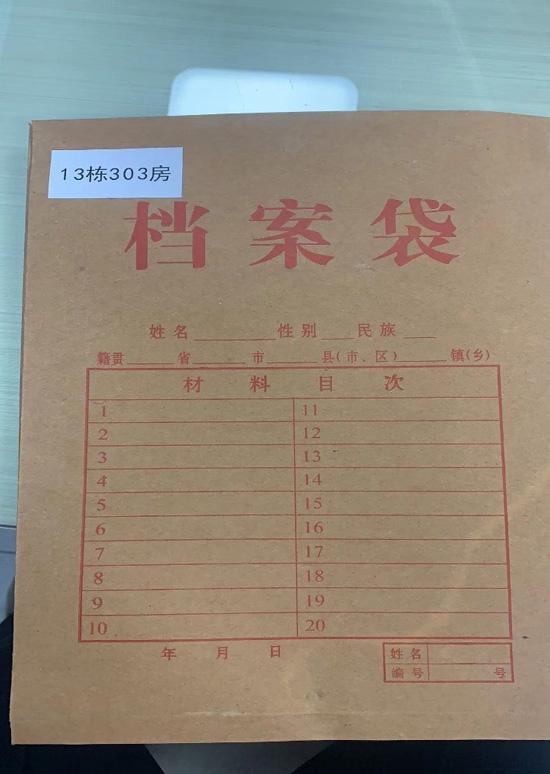 13栋303房
档案袋
姓名 性别 民族
籍贯 省 市 县(市、区) 镇(乡)
材料目次
1 11
2 12
3 13
4 14
5 15
6 16
7 17
8 18
9 19
10 20
年 月 日
姓名
编号 号